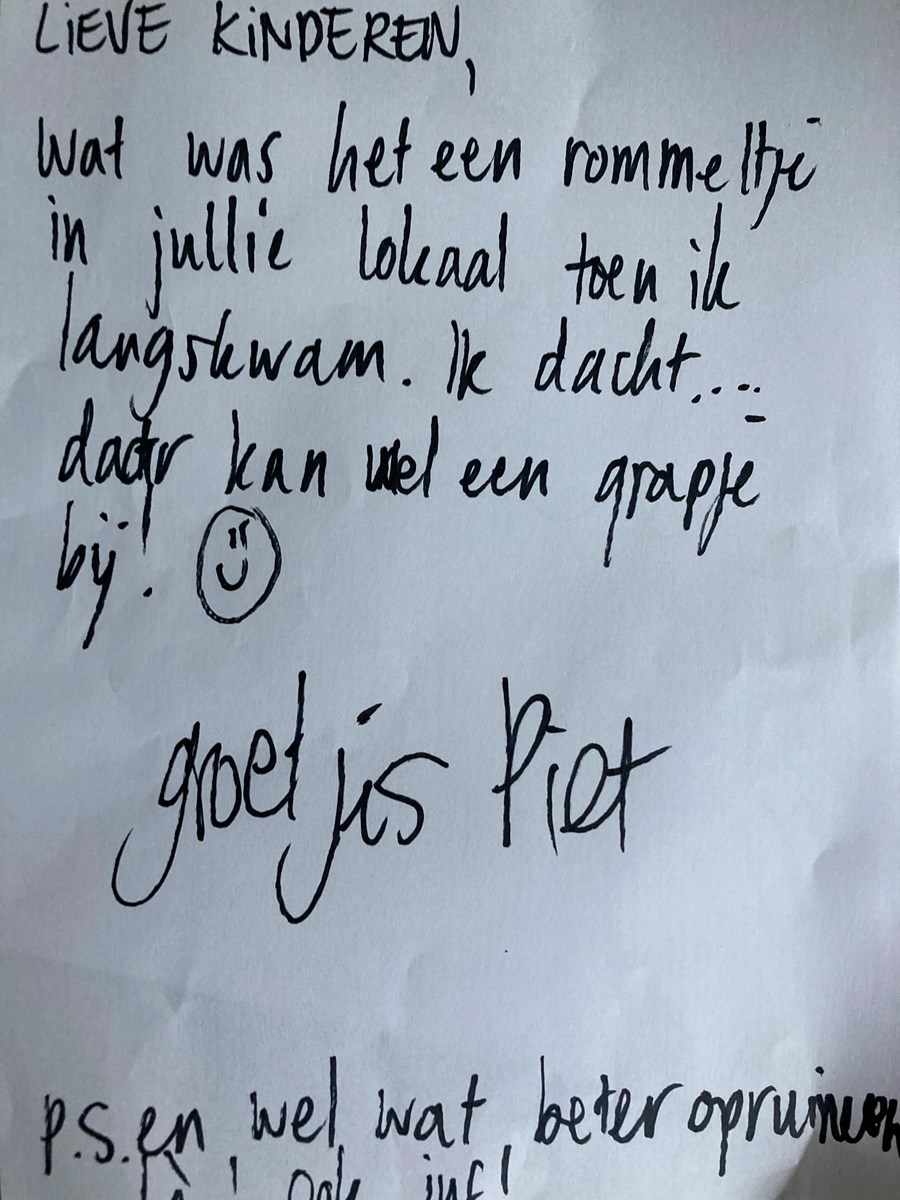 LIEVE KINDEREN,
Wat was het een rommeltje
in jullie lokaal toen ik
langskwam. Ik dacht....
daar kan wel een grapje
bij!
groetjes Piet
p.s. en wel wat beter opruimen
Ook juf!